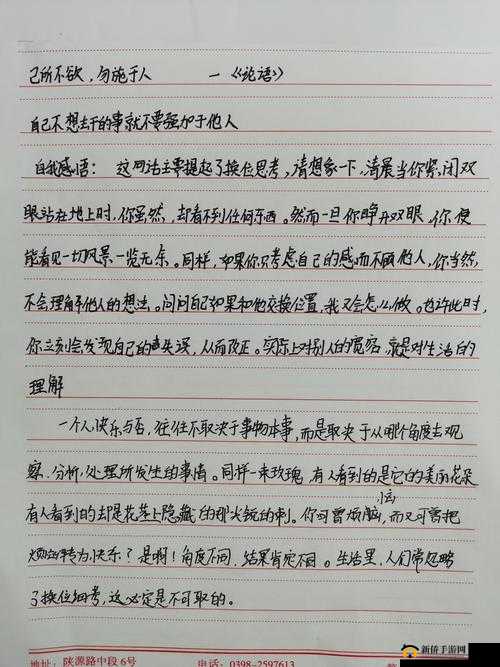 己所不欲，勿施于人 —《论语》
自己不想去干的事就不要强加于他人
自我感悟： 这句话主要提起了换位思考，请想象一下，清晨当你紧闭双
眼站在地上时，你虽然，却看不到任何东西。然而一旦你睁开双眼，你便
能看见一切风景一览无余。同样，如果你只考虑自己的感而不顾他人，你当然，
不会理解他人的想法。问问自己如果和他交换位置，我又会怎么做。也许此时，
你立刻会发现自己的失误，从而改正。实际上对别人的宽容，就是对生活的
理解
一个人快乐与否，往往不取决于事物本事，而是取决于从哪个角度去观
察、分析、处理所发生的事情。同样一束玫瑰，有人看到的是它的美丽花朵
有人看到的却是花茎上隐藏的那尖锐的刺。你可需烦恼，而又可需把
烦恼转为快乐？是啊！角度不同，结果肯定不同。生活里，人们常忽略
了换位细考，这必定是不可取的。
地址：陕源路中段6号 电话：0398-2597613
新侨手游网